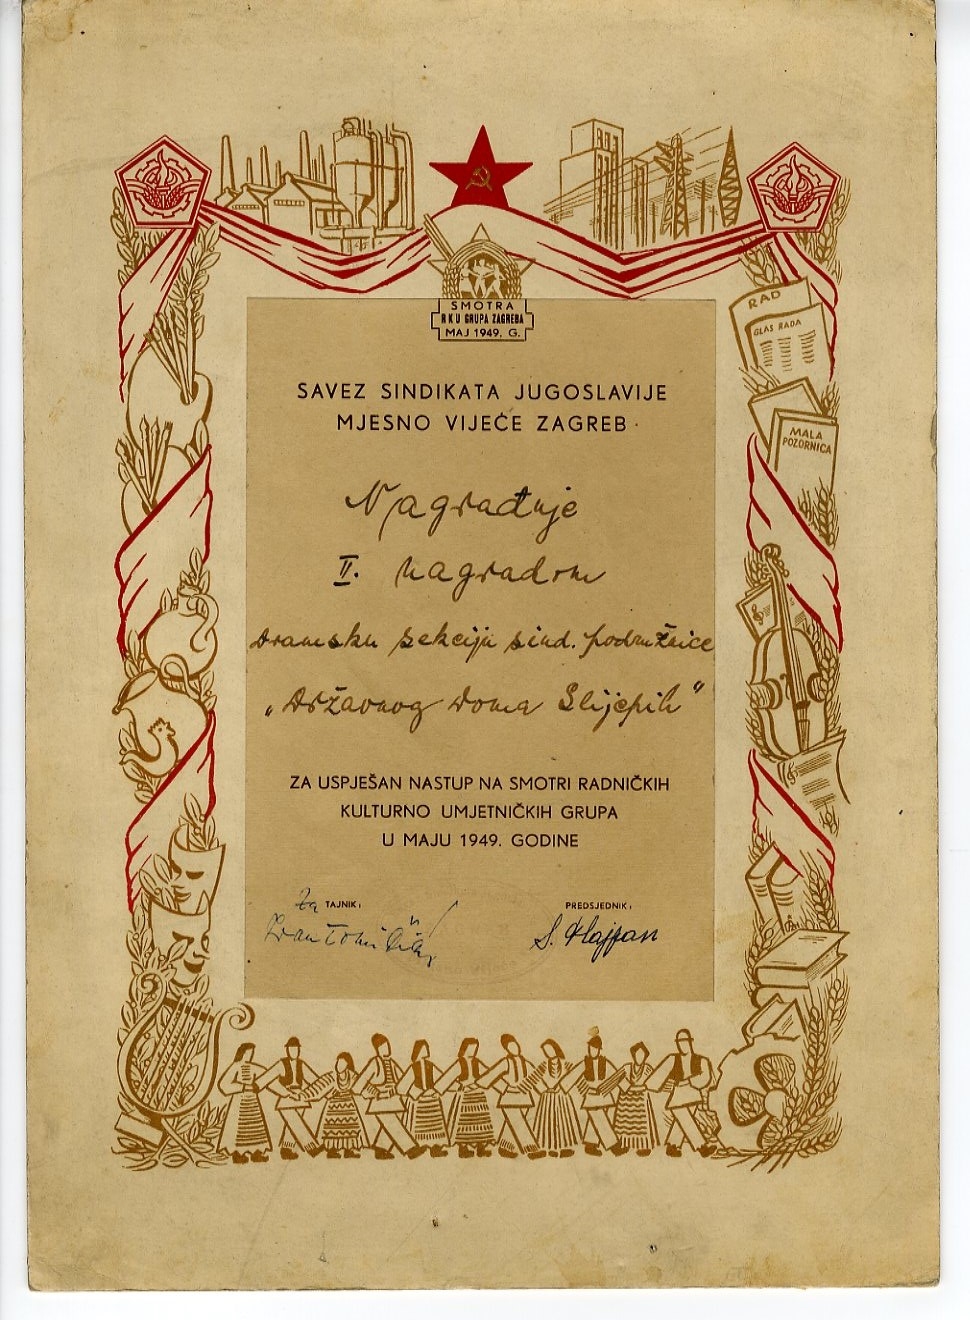 SMOTRA
RKU GRUPA ZAGREBA
MAJ 1949. G.
RAD
GLAS RADA
MALA
POZORNICA
SAVEZ SINDIKATA JUGOSLAVIJE
MJESNO VIJEĆE ZAGREB
Nagrađuje
II. nagradom
dramsku sekciju sind. podružnice
„Državnog doma Slijepih"
ZA USPJEŠAN NASTUP NA SMOTRI RADNIČKIH
KULTURNO UMJETNIČKIH GRUPA
U MAJU 1949. GODINE
Za TAJNIK:
PREDSJEDNIK: